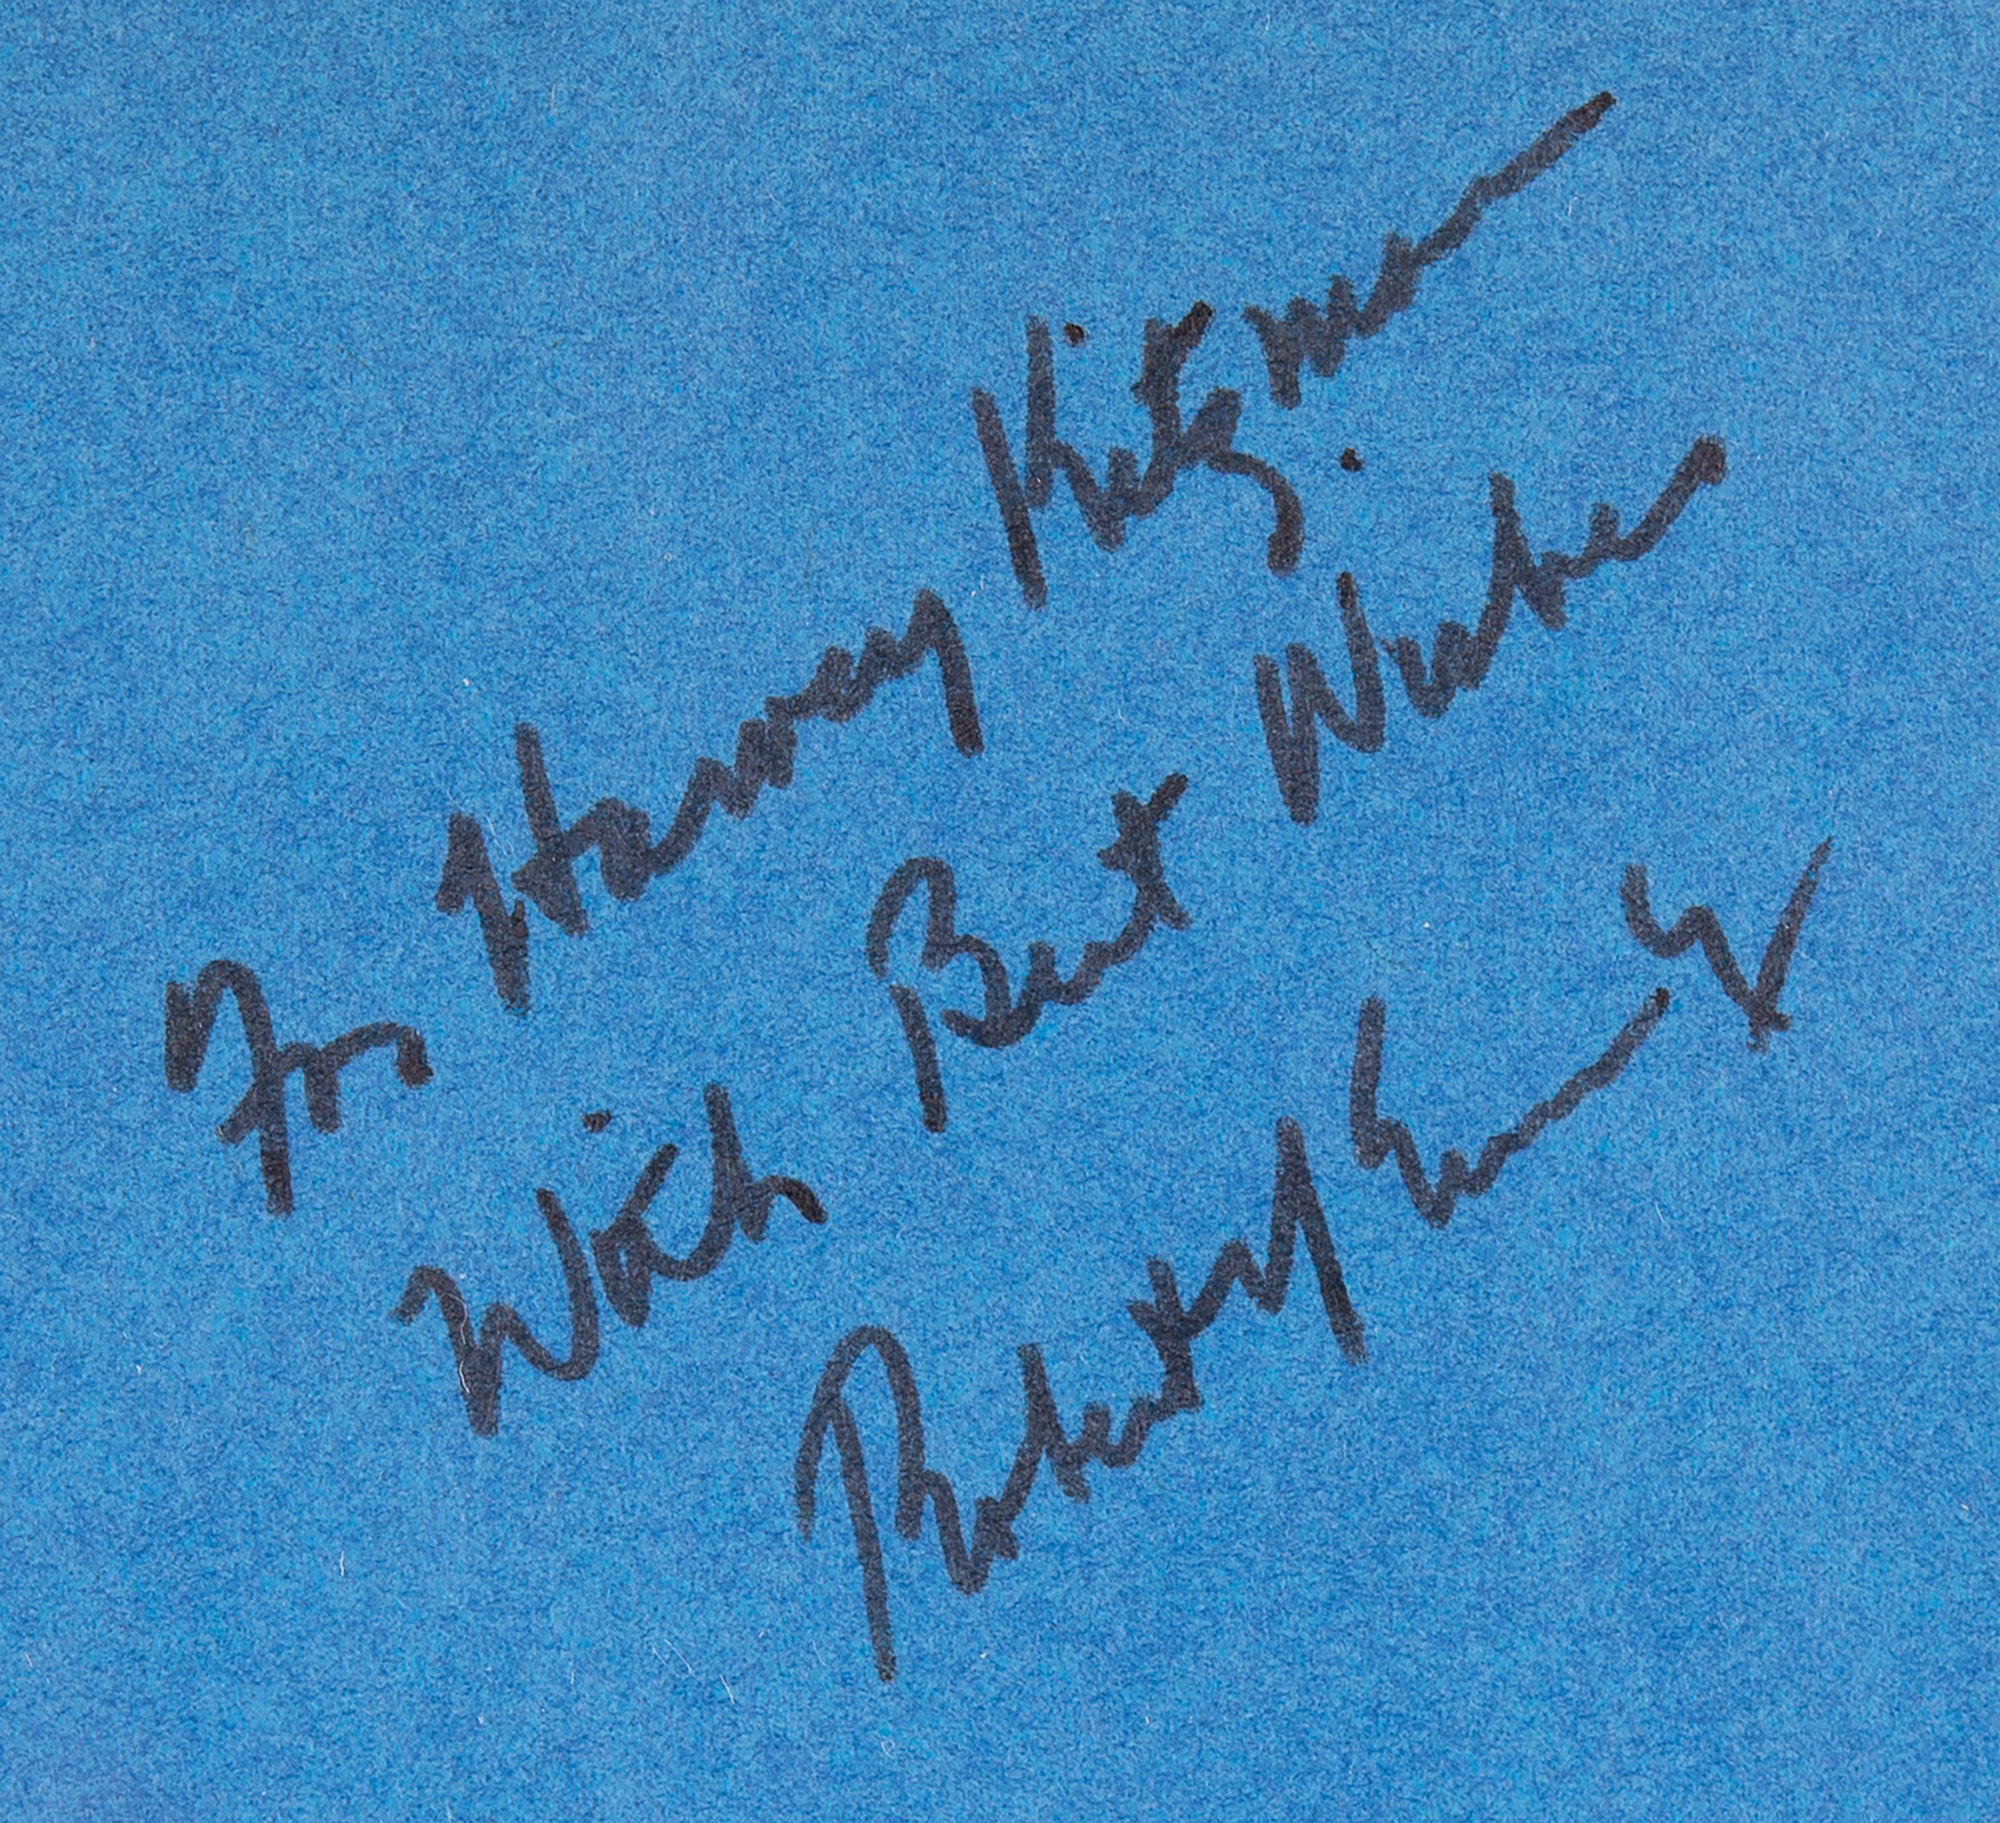 For Harvey Kitzman
With Best Wishes
Robert